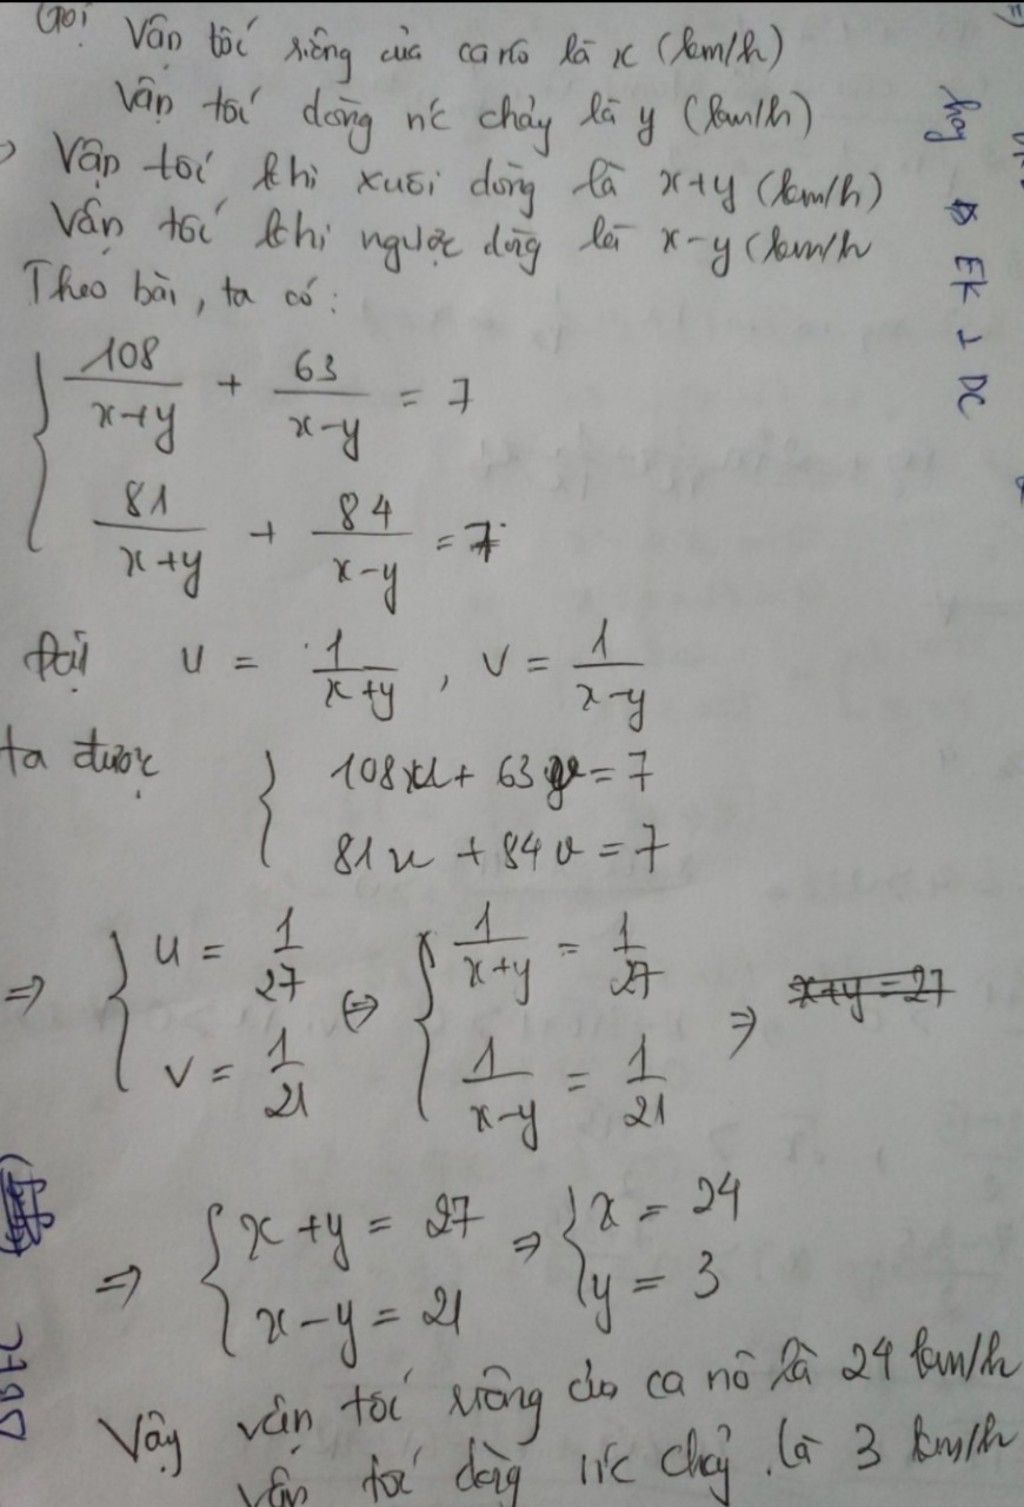 Gọi Vận tốc riêng của ca nô là x (km/h)
Vận tốc dòng nc chảy là y (km/h)
Vận tốc khi xuôi dòng là x+y (km/h)
Vận tốc khi ngược dòng là x-y (km/h
Theo bài, ta có:
108/(x+y) + 63/(x-y) = 7
81/(x+y) + 84/(x-y) = 7
Đặt u = 1/(x+y), v = 1/(x-y)
ta được
108u + 63v = 7
81u + 84v = 7
⇒ { u = 1/27 ⇔ { 1/(x+y) = 1/27 ⇒ x+y=27
v = 1/21 1/(x-y) = 1/21
⇒ { x+y = 27 ⇒ { x = 24
x-y = 21 y = 3
Vậy vận tốc riêng của ca nô là 24 km/h
vận tốc dòng nc chảy là 3 km/h
hay EK ⊥ DC